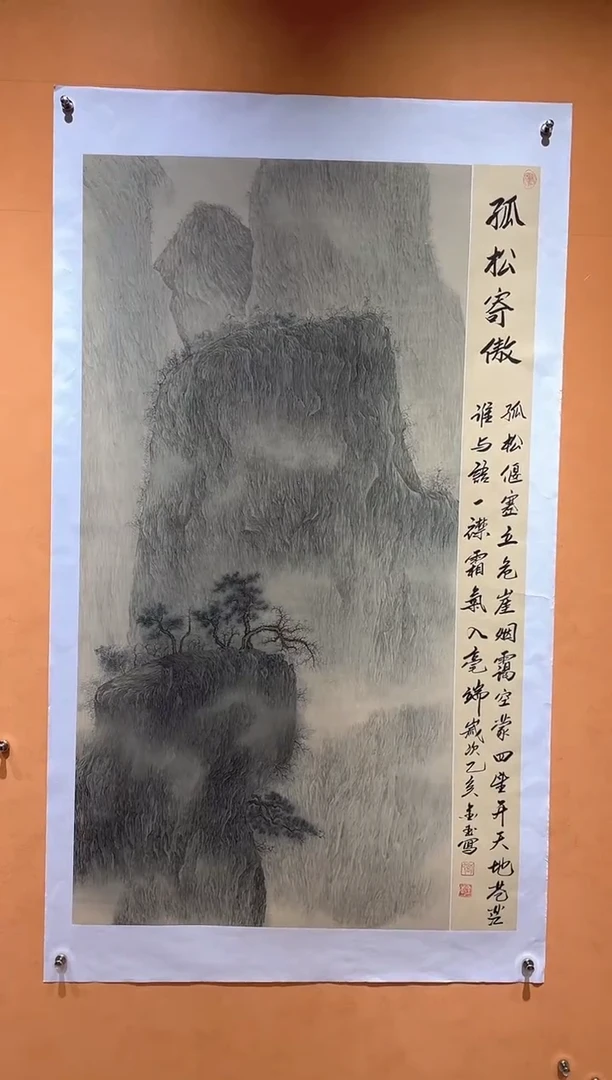 孤松寄傲
孤松偃蹇立危崖烟靄空蒙四望开天地苍茫
谁与语一襟霜氣入毫端歲次乙亥金玉寫